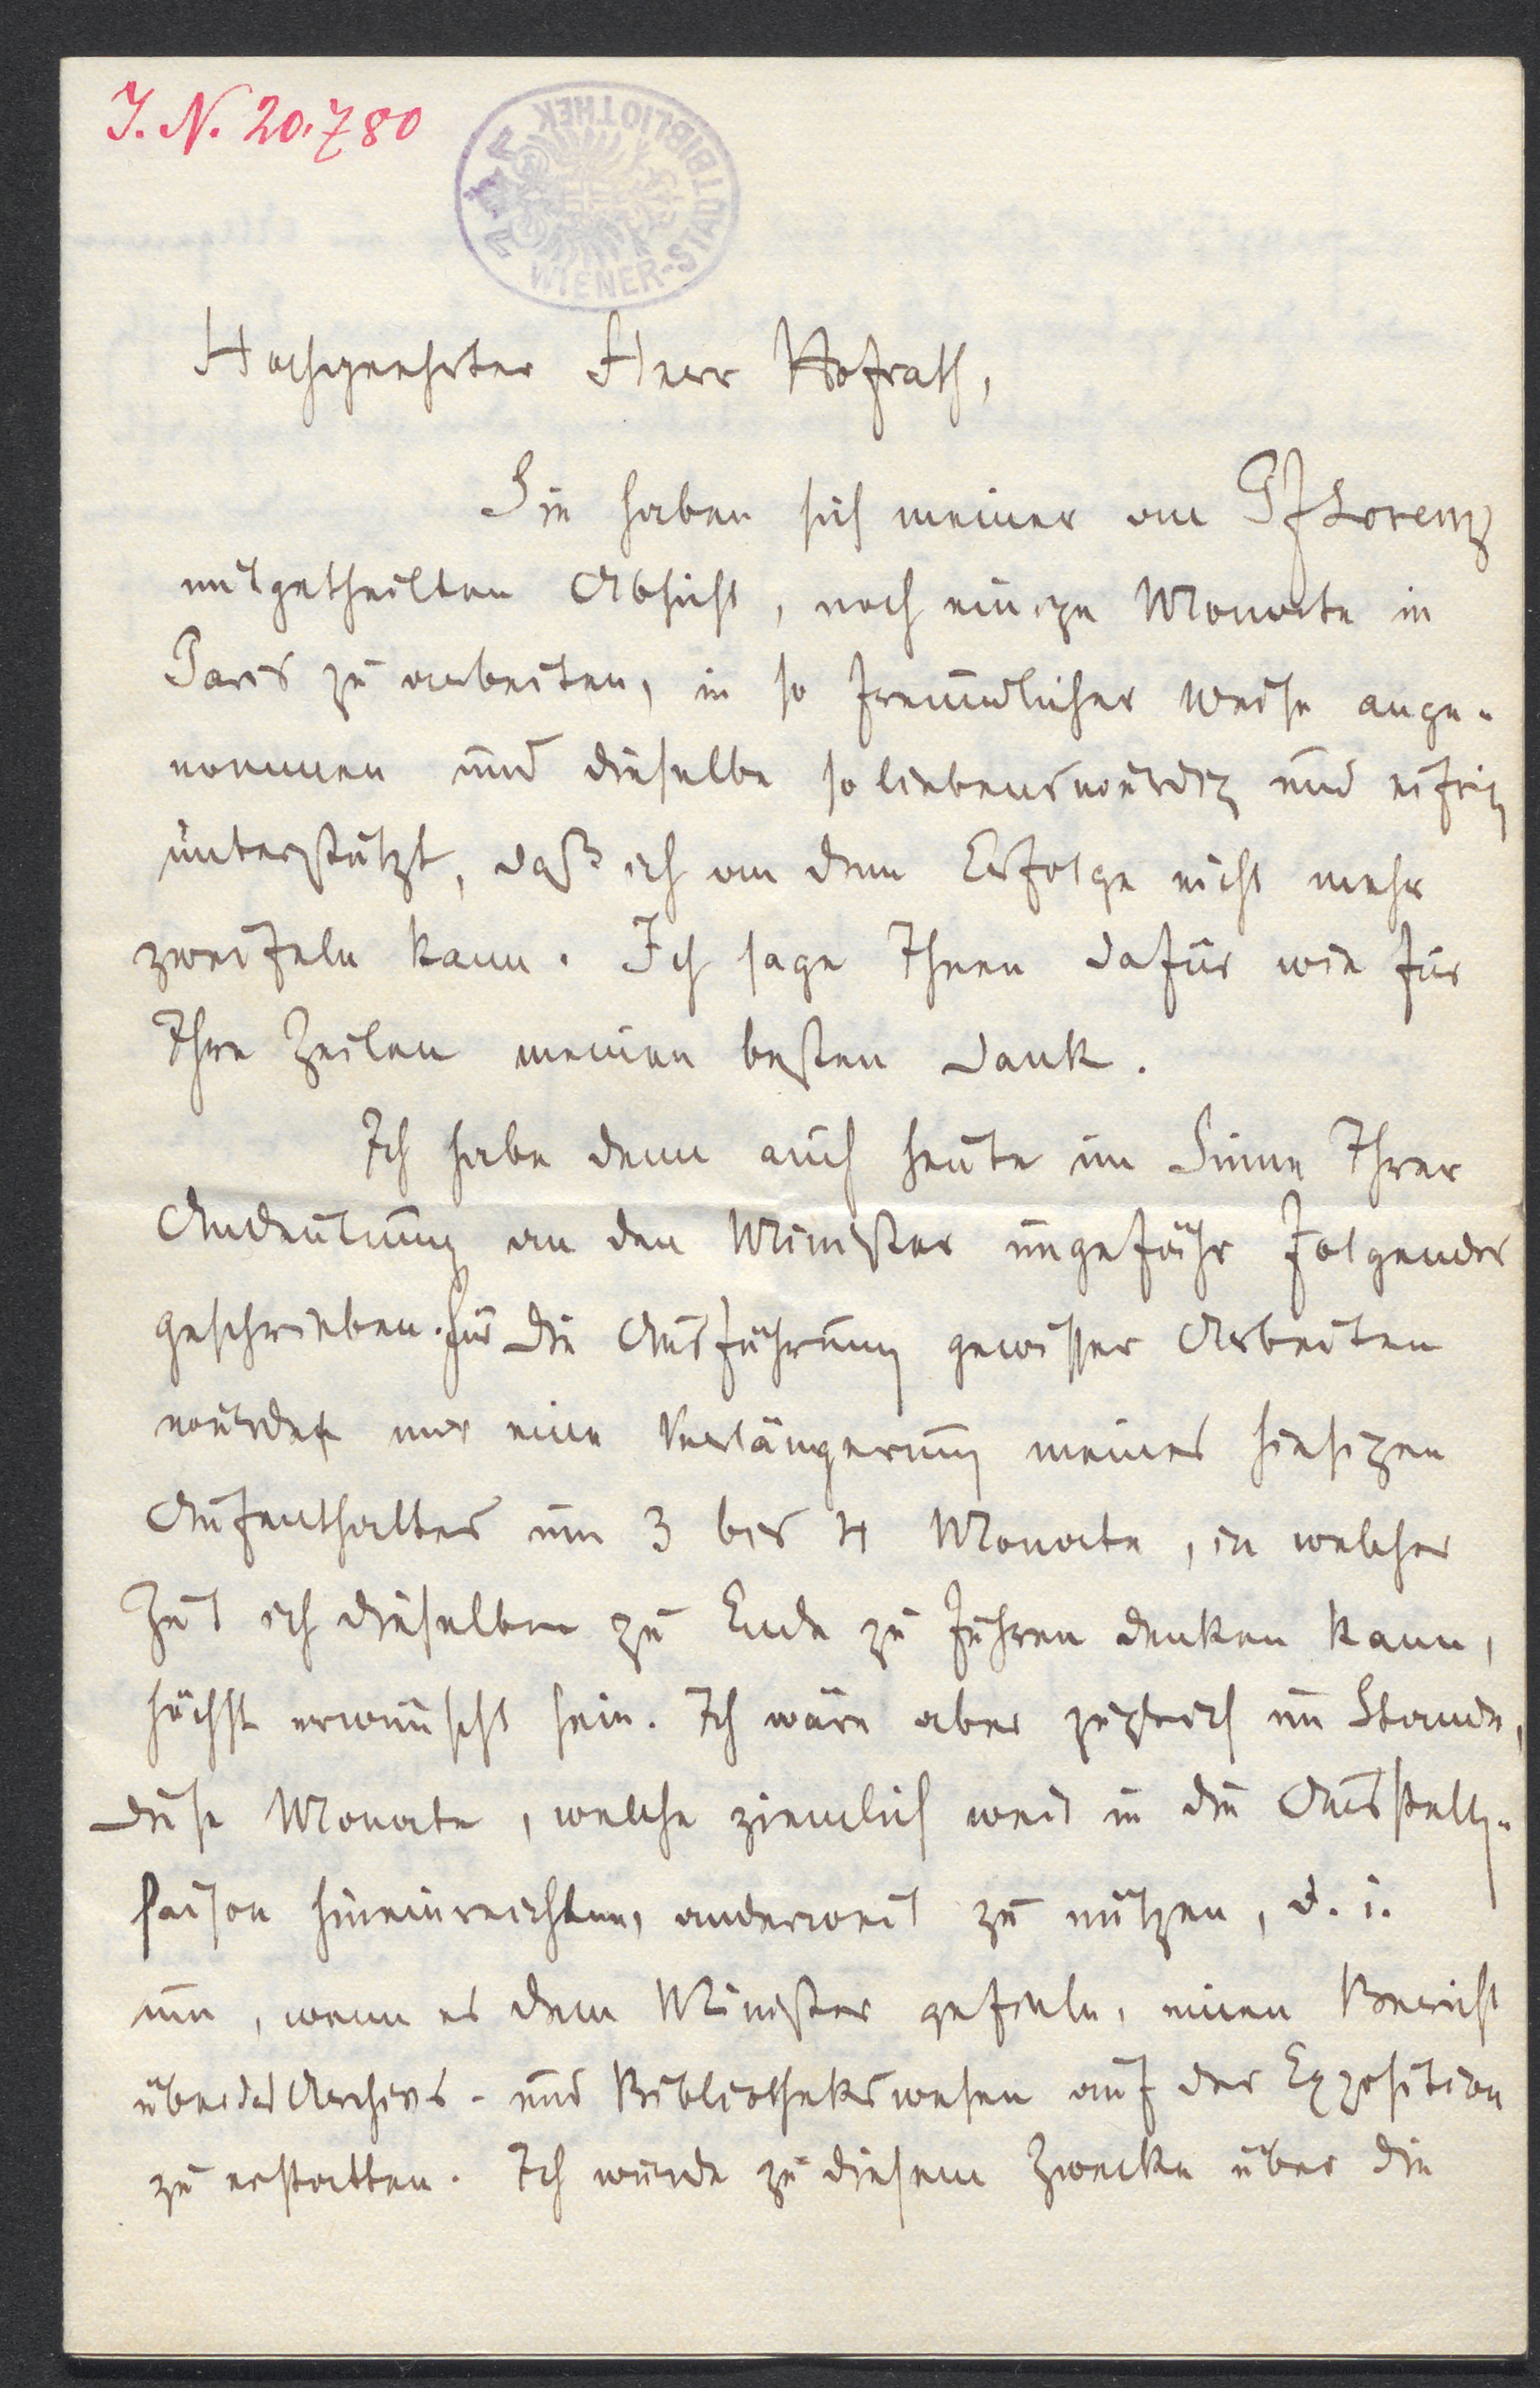 J. N. 20.780
WIENER-STADTBIBLIOTHEK
Hochgeehrter Herr Hofrath,
Sie haben sich meiner an Pf Lorenz
mitgetheilten Absicht, noch einige Monate in
Paris zu arbeiten, in so freundlicher Weise ange-
nommen und dieselbe so liebenswürdig und eifrig
unterstützt, daß ich an dem Erfolge nicht mehr
zweifeln kann. Ich sage Ihnen dafür wie für
Ihre Zeilen meinen besten Dank.
Ich habe denn auch heute im Sinne Ihrer
Andeutung an den Minister ungefähr Folgendes
geschrieben. Für die Ausführung gewisser Arbeiten
würde mir eine Verlängerung meines hiesigen
Aufenthaltes um 3 bis 4 Monate, in welcher
Zeit ich dieselben zu Ende zu führen denken kann,
höchst erwünscht sein. Ich wäre aber zugleich im Stande,
diese Monate, welche ziemlich weit in die Ausstellgs-
saison hineinreichten, anderweit zu nützen, d. i.
um, wenn es dem Minister gefiele, einen Bericht
über das Archivs- und Bibliothekswesen auf der Exposition
zu erstatten. Ich würde zu diesem Zwecke über die